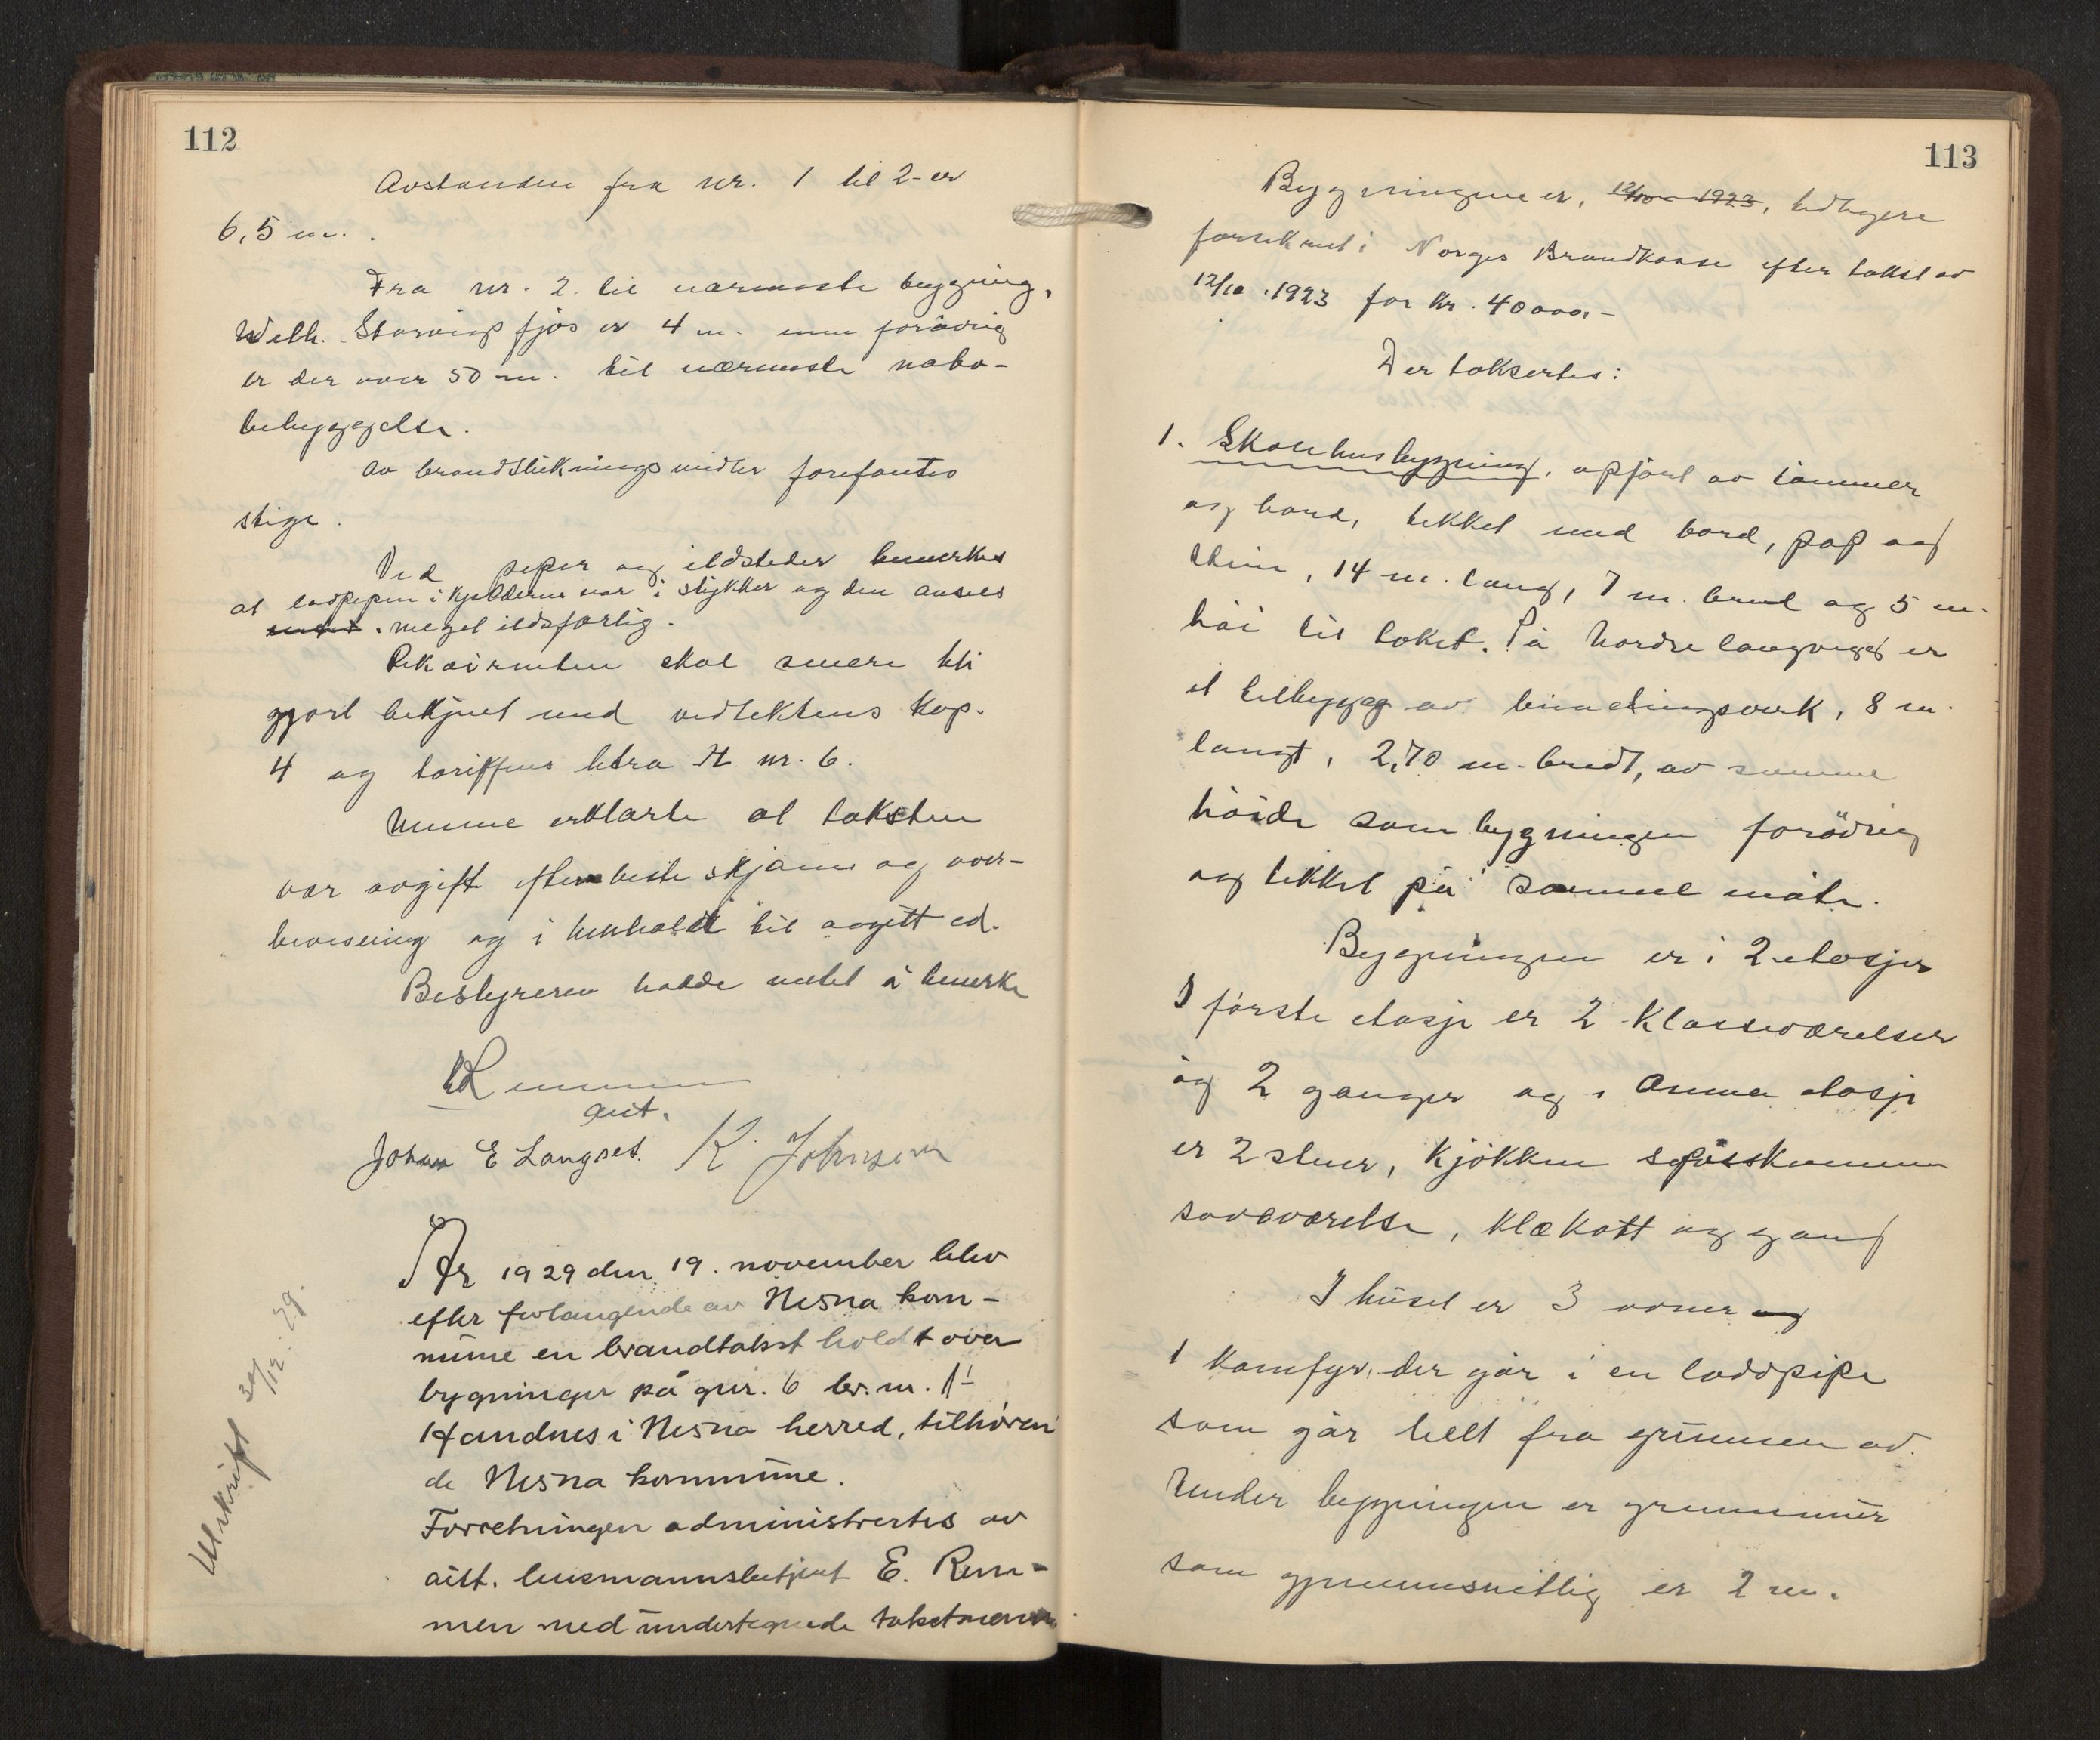 112
Avstanden fra nr. 1 til 2 er
6,5 m.
Fra nr. 2 til nærmeste bygning,
Wilh. Storvigs fjös er 4 m. men forövrig
er der over 50 m. til nærmeste nabo-
bebyggelse.
Av brandsluknings midler forefantes
stige.
Ved piper og ildsteder bemerkes
at lodpipen i kjelderen var i stykker og den ansees
meget ildsfarlig.
Rekvirenten skal senere bli
gjort bekjent med vedtektens kap.
4 og tariffens litra H nr. 6.
Menne erklærte at taksten
var avgitt efter beste skjönn og over-
bevisning og i henhold til avgitt ed.
Bestyreren hadde intet å bemerke
E Remmen
aut.
Johan E Langset. K. Johnsen
År 1929 den 19. november blev
efter forlangende av Nesna kom-
mune en brandtakst holdt over
bygninger på gnr. 6 br. nr. 11
Handnes i Nesna herred, tilhören
de Nesna kommune.
Forretningen administrertes av
aut. lensmannsbetjent E. Rem-
men med undertegnede takstmenn.
Utskrift 30/12. 29.
113
Bygningene er, 12/10 - 1923, tidligere
forsikret i Norges Brandkasse efter takst av
12/10 .1923 for kr. 40000,-
Der taksertes:
1. Skolehusbygning, opfört av tömmer
og bord, tekket med bord, pap og
stein, 14 m. lang, 7 m. bred og 5 m.
höi til taket. På nordre langvegg er
et tilbygg av bindingsverk, 8 m.
langt, 2,70 m. bredt, av samme
höide som bygningen forövrig
og tekket på samme måte.
Bygningen er i 2 etasjer
I förste etasje er 2 klasseværelser
og 2 ganger og i annen etasje
er 2 stuer, kjökken spisskammer
soveværelse, klækott og gang
I huset er 3 ovner og
1 komfyr, der går i en loddpipe
som går helt fra grunnen av.
Under bygningen er grunnmur
som gjennemsnittlig er 2 m.